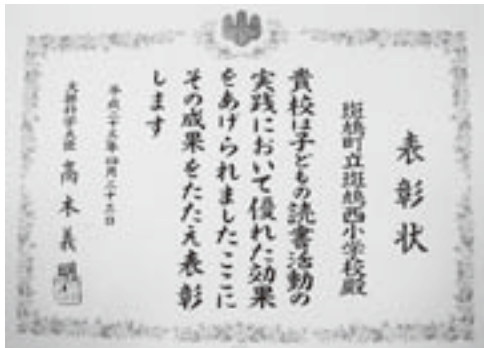 表彰状
斑鳩町立斑鳩西小学校殿
貴校は子どもの読書活動の
実践において優れた効果
をあげられましたここに
その成果をたたえ表彰
します
平成二十三年四月二十三日
文部科学大臣 高木義明